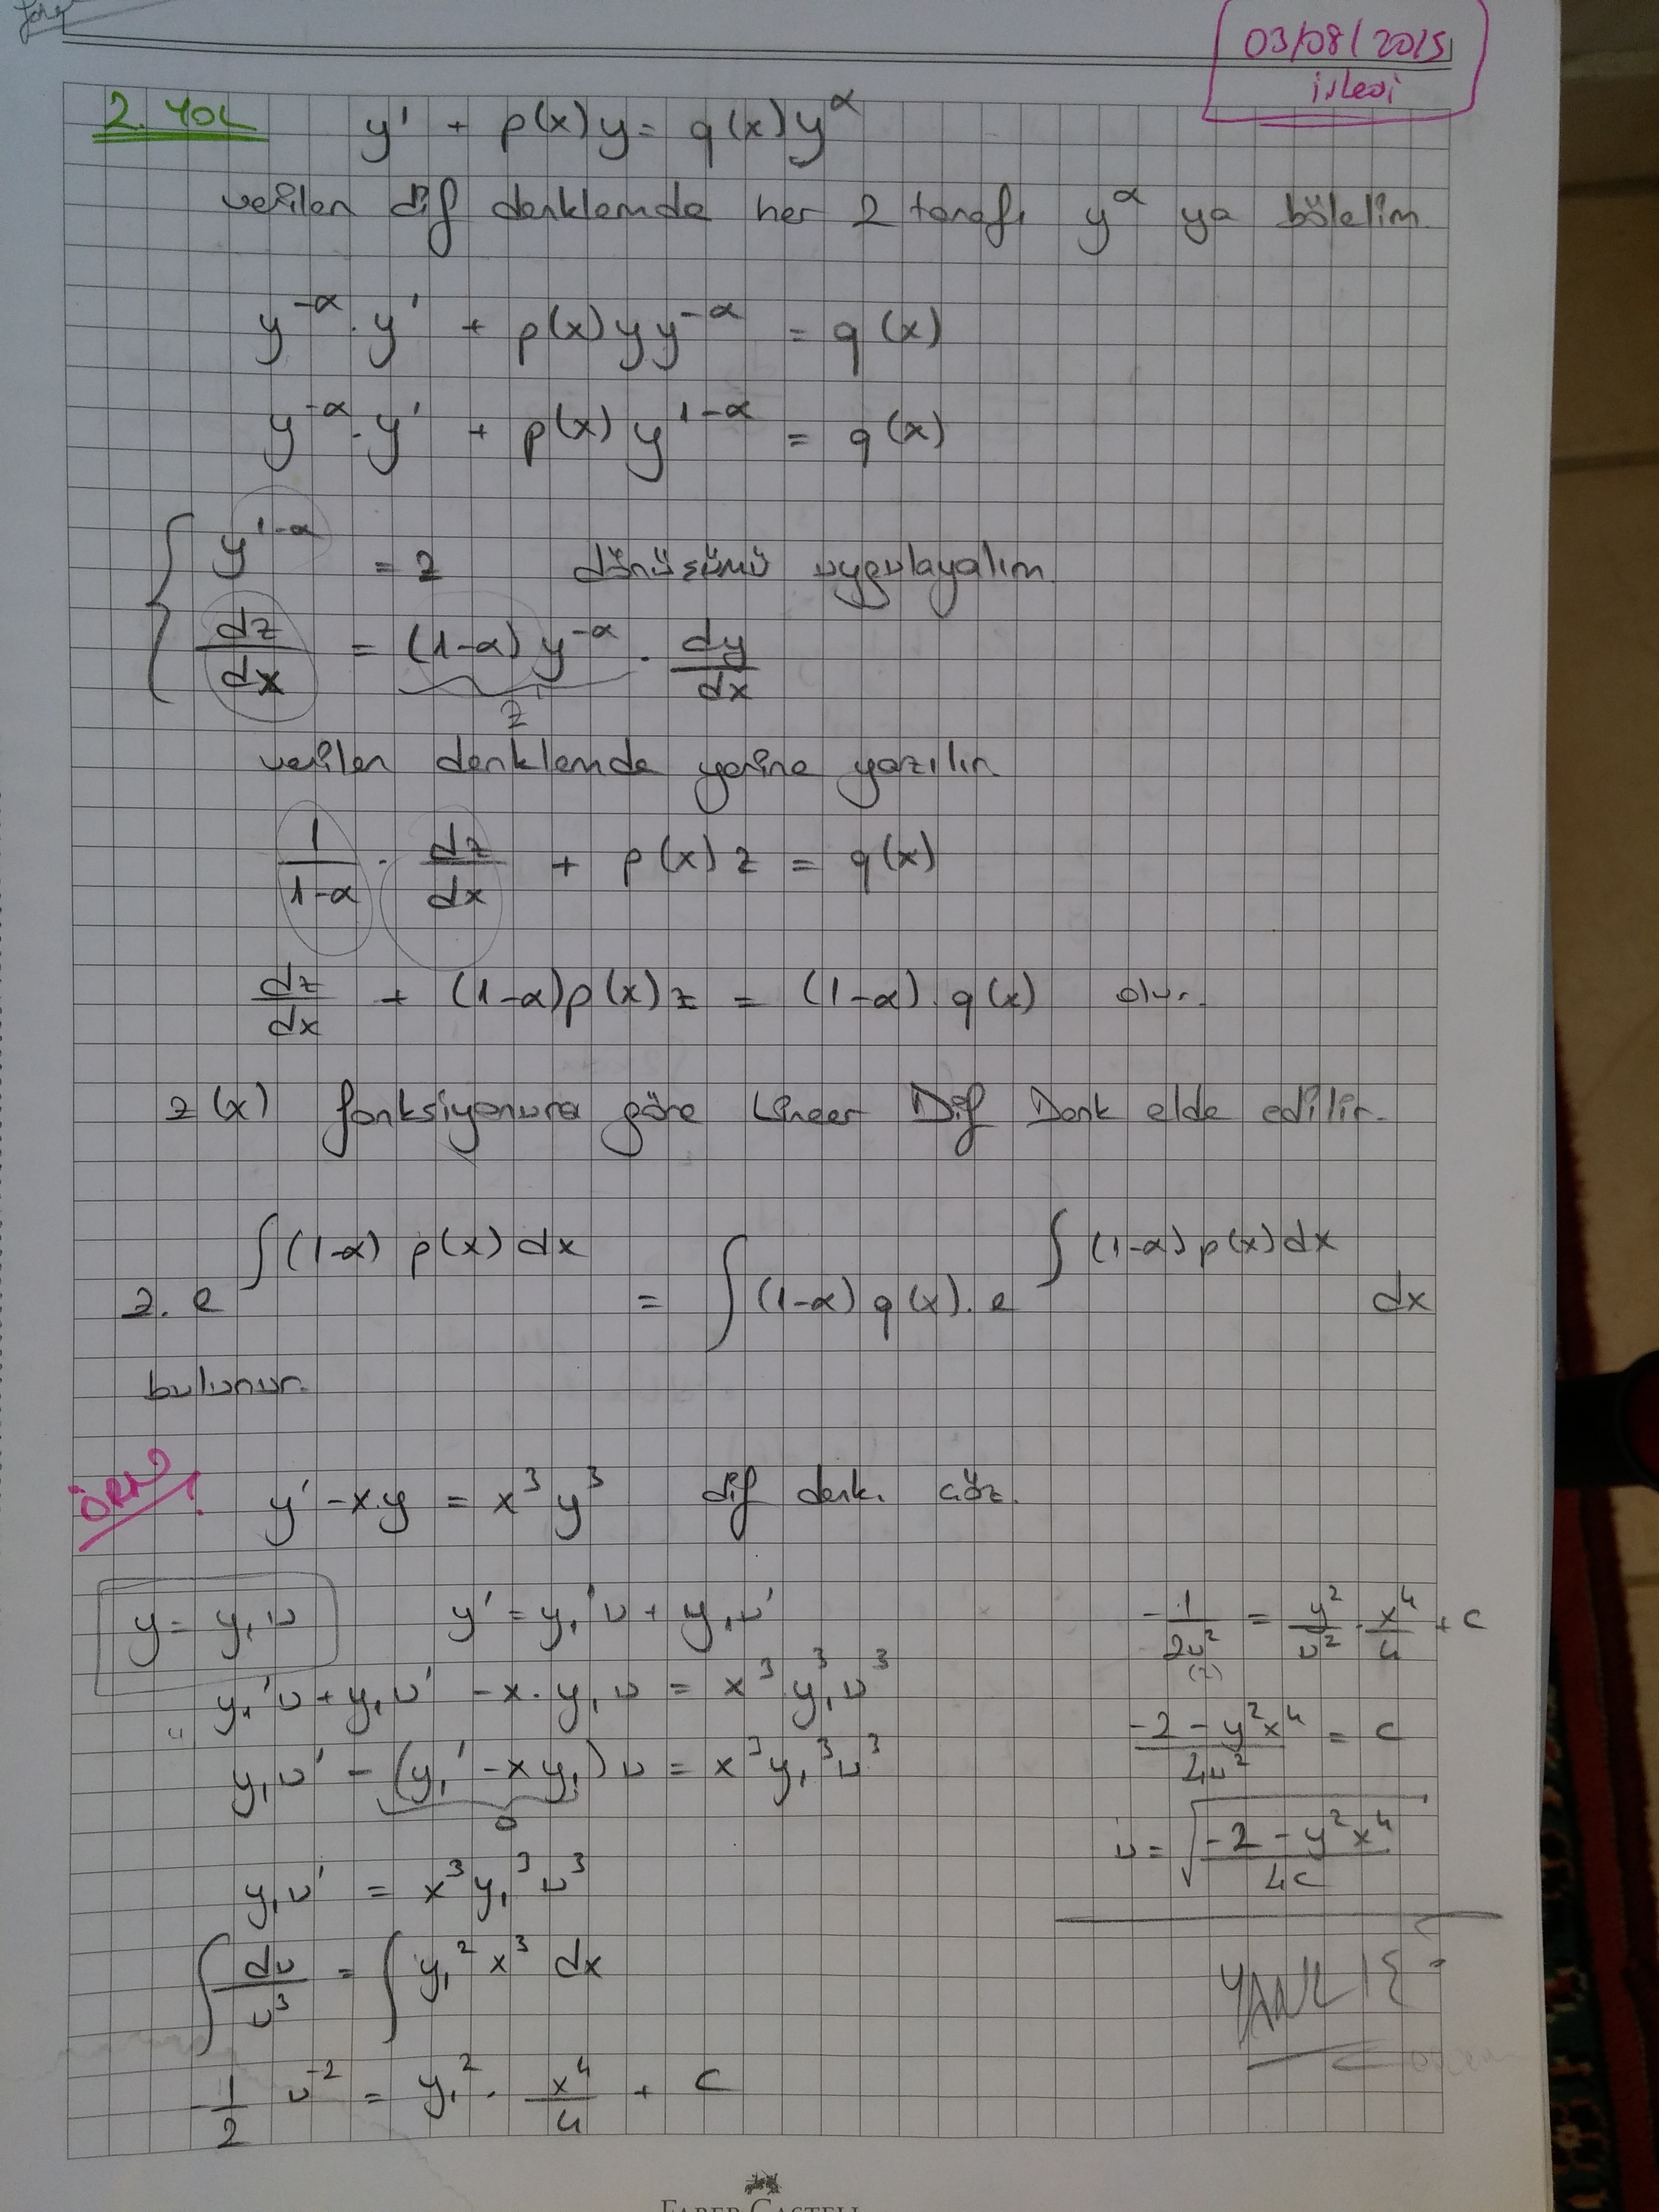 03/08/2015
işlesi
2. YOL
y' + p(x)y = q(x)y^α
verilen dif denklemde her 2 tarafı y^α ya bölelim
y^-α . y' + p(x) y y^-α = q(x)
y^-α . y' + p(x) y^1-α = q(x)
y^1-α = z dönüşümü uygulayalım
dz/dx = (1-α) y^-α . dy/dx
z
verilen denklemde yerine yazılır.
1/1-α . dz/dx + p(x) z = q(x)
dz/dx + (1-α)p(x) z = (1-α) . q(x) olur.
z(x) fonksiyonuna göre Lineer Dif Denk elde edilir.
z . e^∫(1-α) p(x) dx = ∫(1-α) q(x) . e^∫(1-α) p(x) dx dx
bulunur.
ÖRN
y' - x.y = x³ y³ dif denk. çöz.
y = y₁ υ y' = y₁'υ + y₁υ'
y₁'υ + y₁υ' - x . y₁ υ = x³ . y₁³ υ³
y₁υ' - (y₁' - x y₁) υ = x³ y₁³ υ³
0
y₁υ' = x³ y₁³ υ³
∫ dυ/υ³ = ∫ y₁² x³ dx
-1/2 υ^-2 = y₁² . x⁴/4 + c
-1/2υ² = y²/υ² . x⁴/4 + c
(2)
-2 - y²x⁴/4υ² = c
υ = √-2 - y²x⁴/4c
YANLIŞ
FABER-CASTELL